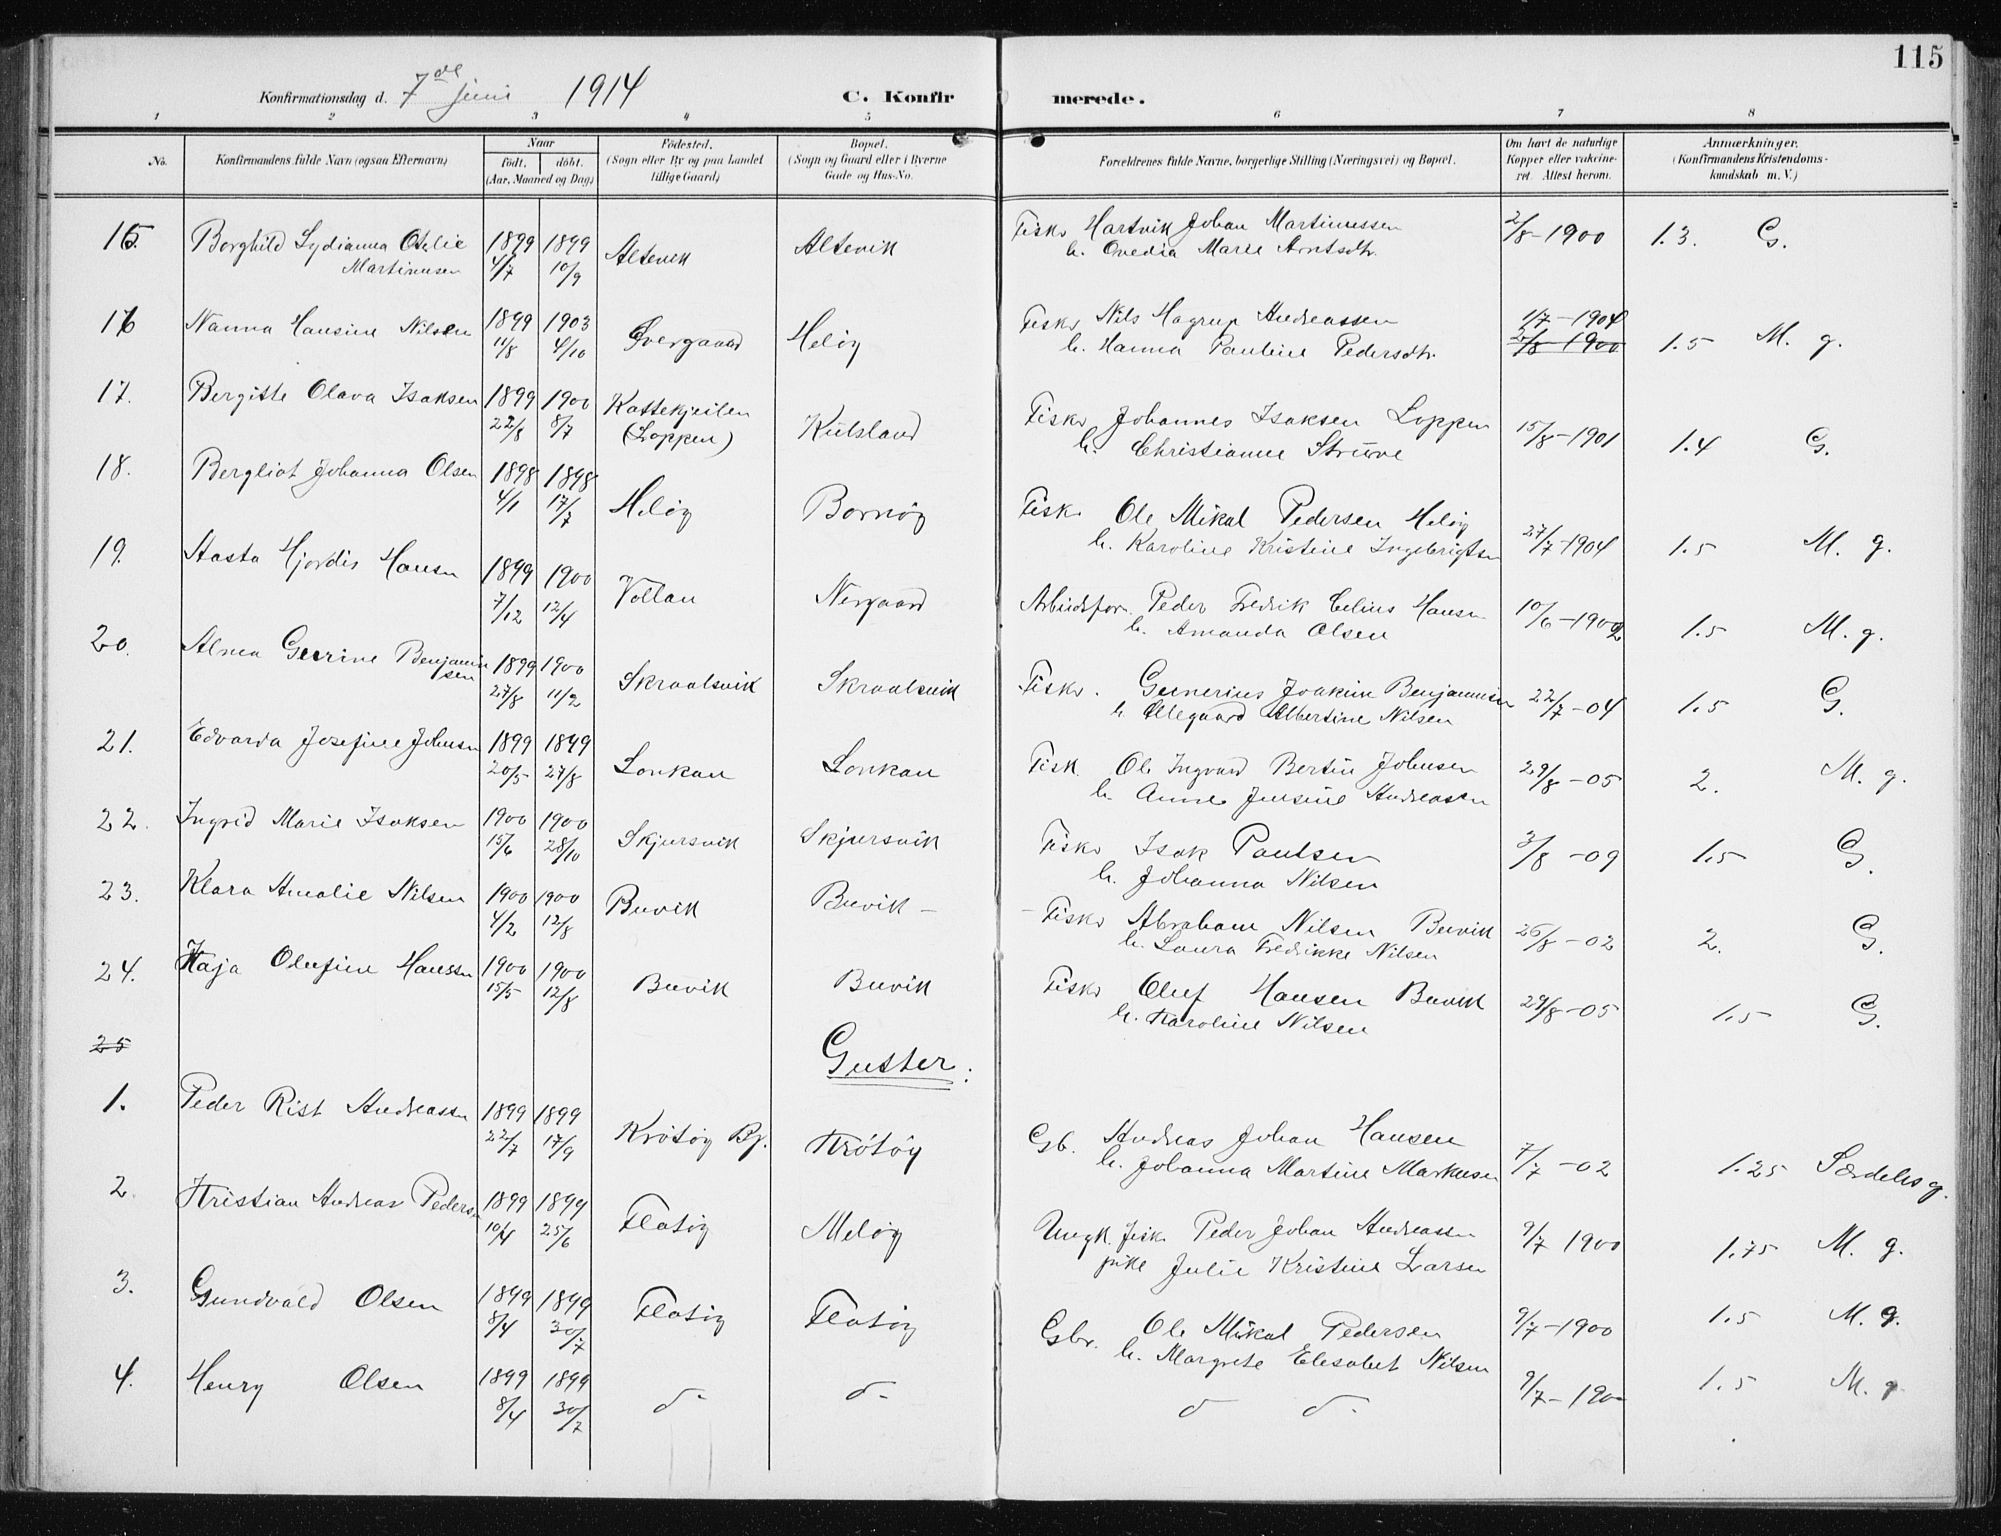 115
Konfirmationsdag d. 7de juni 1914 C. Konfirmerede.
1 2 3 4 5 6 7 8
No. Konfirmandens fulde Navn (ogsaa Efternavn) Naar født. døbt. (Aar, Maaned og Dag) Fødested. (Sogn eller By og paa Landet tillige Gaard) Bopæl. (Sogn og Gaard eller i Byerne Gade og Hus-No. Forældrenes fulde Navne, borgerlige Stilling (Næringsvei) og Bopæl. Om havt de naturlige Kopper eller vakcineret. Attest herom. Anmærkninger. (Konfirmandens Kristendomskundskab m. V.)
15 Borghild Lydianna Otelie 1899 1899 Altevik Altevik Fisker Hartvik Johan Martinussen 2/8-1900 1.3. G.
Martinusen 4/7 10/9 h. Ovedia Marie Arntsdtr.
16 Nanna Hansine Nilsen 1899 1903 Övergaard Meløy Fisker Nils Hagrup Andreassen 1/7-1904
11/8 4/10 h. Hanna Pauline Pedersdtr. 2/8-1900 1.5 M. g.
17. Bergitte Olava Isaksen 1899 1900 Kattekjeilen Kilsland Fisker Johannes Isaksen Loppen 15/8-1901 1.4 G.
22/8 8/7 (Loppen) h. Christianne Strüwe
18. Bergliot Johanna Olsen 1898 1898 Meløy Bornøy Fisk. Ole Mikal Pedersen Meløy 27/7-1904 1.5 M. g.
4/1 17/7 h. Karoline Kristine Ingebrigtsen
19. Aasta Hjørdis Hansen 1899 1900 Vollan Nergaard Arbeidsfor. Peder Fredrik Celius Hansen 10/6-1902 1.5 M. g.
7/12 12/4 h. Amanda Olsen
20. Alma Geerine Benjaminsen 1899 1900 Skraalsvik Skraalsvik Fisker. Geenerius Joakim Benjaminsen 22/7-04 1.5 G.
27/8 11/2 h. Ellegaard Albertine Nilsen
21. Edvarda Josefine Johnsen 1899 1899 Lonkan Lonkan Fisk. Ole Ingvard Bertin Johnsen 29/8-05 2. M. g.
20/5 27/8 h. Anne Jensine Andreasen
22. Ingrid Marie Isaksen 1900 1900 Skjersvik Skjersvik Fisker Isak Paulsen 3/8-09 1.5 G.
15/6 28/10 h. Johanna Nilsen
23. Klara Amalie Nilsen 1900 1900 Buvik Buvik - - Fisker Abraham Nilsen Buvik 26/8-02 2. G.
4/2 12/8 h. Laura Fredrikke Nilsen
24. Kaja Olufine Hansen 1900 1900 Buvik Buvik Fisker Oluf Hansen Buvik 29/8-05 1.5 G.
15/5 12/8 h. Karoline Nilsen
25 Gutter:
1. Peder Rist Andreassen 1899 1899 Krøtøy Bj. Krøtøy Gb. Andreas Johan Hansen 7/7-02 1.25 Særdeles g.
22/7 17/9 h. Johanna Martine Markusen
2. Kristian Andreas Pedersen 1899 1899 Flatøy Meløy Ungk. fisk. Peder Johan Andreassen 9/7 1900 1.75 M. g.
10/4 25/6 pike Julie Kristine Larsen
3. Gundvald Olsen 1899 1899 Flatøy Flatøy Gbr. Ole Mikal Pedersen 9/7-1900 1.5 M. g.
8/4 30/7 h. Margrete Elesabet Nilsen
4. Henry Olsen 1899 1899 d- d- d d- 9/7-190- 1.5 M. g
8/4 30/7